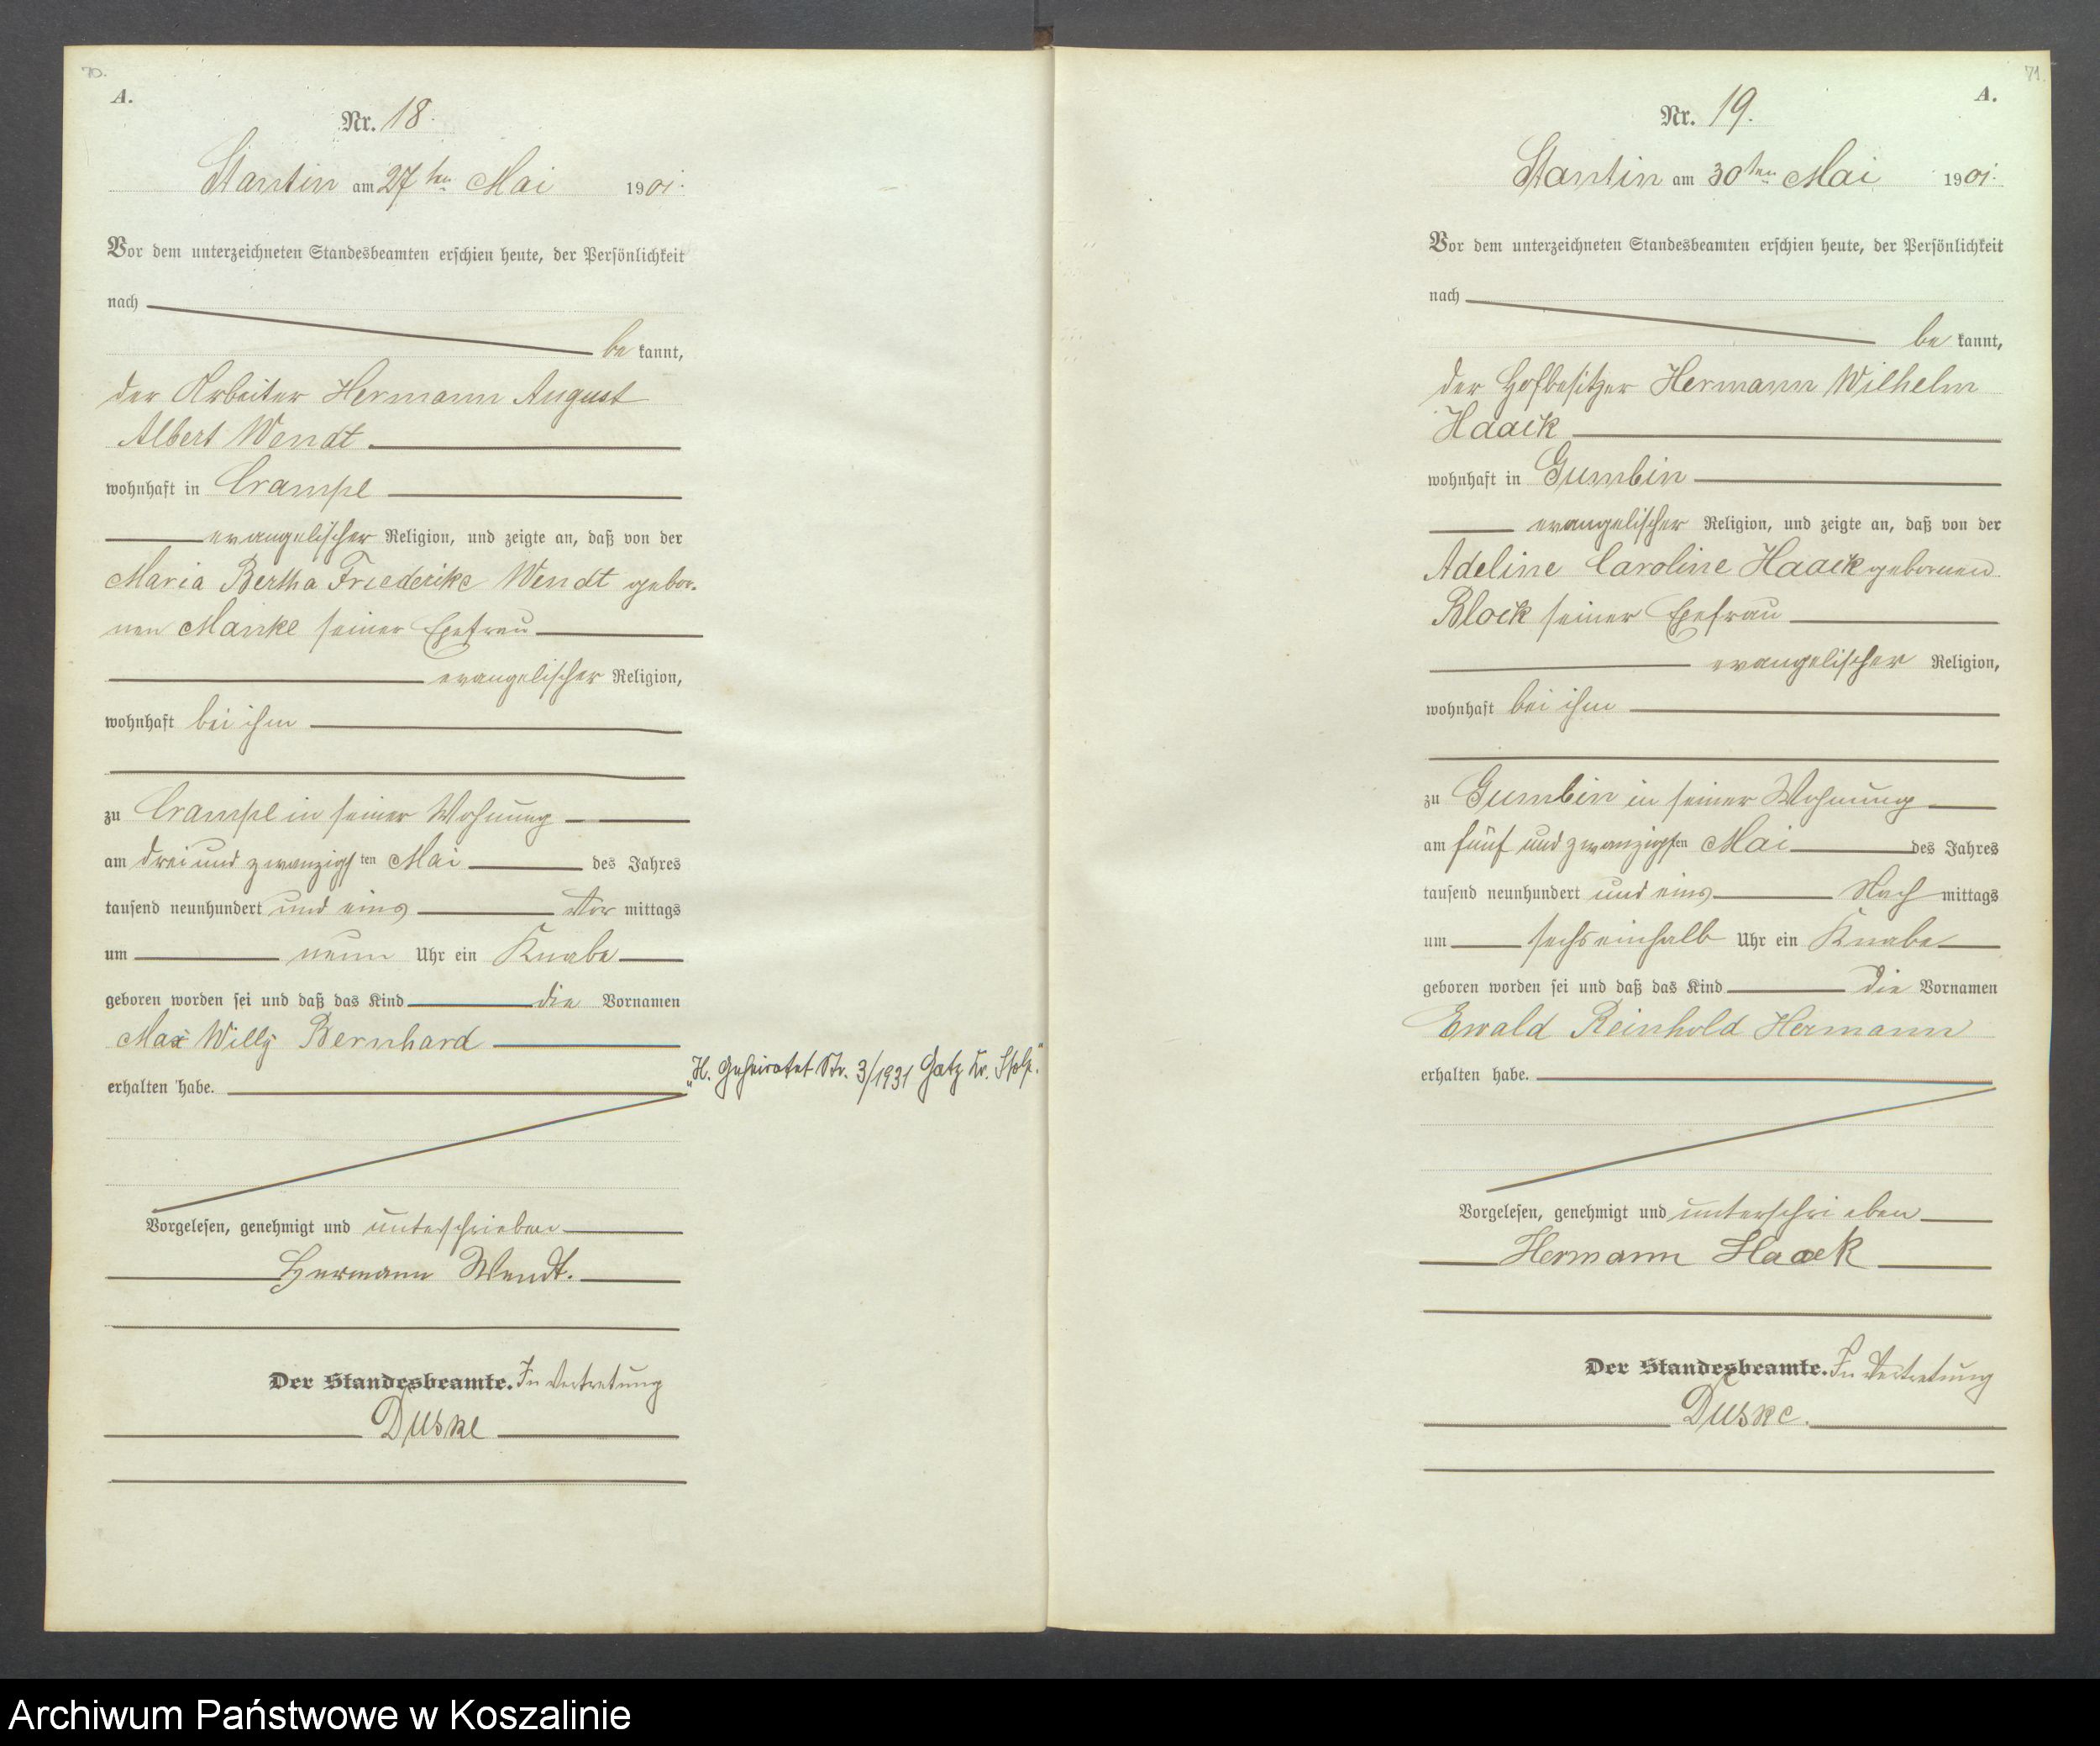 70.
A.
Nr. 18.
Stantin am 27ten Mai 1901.
Vor dem unterzeichneten Standesbeamten erschien heute, der Persönlichkeit
nach
be kannt,
der Arbeiter Hermann August
Albert Wendt
wohnhaft in Crampe
evangelischer Religion, und zeigte an, daß von der
Maria Bertha Friederike Wendt gebor-
nen Manke seiner Ehefrau
evangelischer Religion,
wohnhaft bei ihm
zu Crampe in seiner Wohnung
am drei und zwanzigsten Mai des Jahres
tausend neunhundert und eins Vor mittags
um neun Uhr ein Knabe
geboren worden sei und daß das Kind die Vornamen
Max Willy Bernhard
erhalten habe.
„H. Geheiratet Nr. 3/1931 Gatz Kr. Stolp."
Vorgelesen, genehmigt und unterschrieben
Hermann Wendt.
Der Standesbeamte. In Vertretung
Duske
71.
A.
Nr. 19.
Stantin am 30ten Mai 1901.
Vor dem unterzeichneten Standesbeamten erschien heute, der Persönlichkeit
nach
be kannt,
der Hofbesitzer Hermann Wilhelm
Haack
wohnhaft in Gumbin
evangelischer Religion, und zeigte an, daß von der
Adeline Caroline Haack gebornen
Block seiner Ehefrau
evangelischer Religion,
wohnhaft bei ihm
zu Gumbin in seiner Wohnung
am fünf und zwanzigsten Mai des Jahres
tausend neunhundert und eins Nach mittags
um sechseinhalb Uhr ein Knabe
geboren worden sei und daß das Kind die Vornamen
Ewald Reinhold Hermann
erhalten habe.
Vorgelesen, genehmigt und unterschrieben
Hermann Haack
Der Standesbeamte. In Vertretung
Duske.
Archiwum Państwowe w Koszalinie